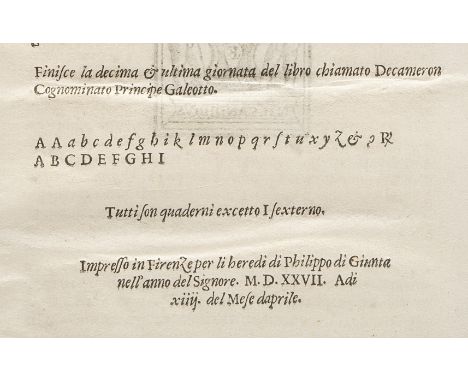 Finisce la decima & ultima giornata del libro chiamato Decameron
Cognominato Principe Galeotto.
A A a b c d e f g h i k l m n o p q r s t u x y z & ꝯ ꝶ
A B C D E F G H I
Tutti son quaderni excetto I sexterno.
Impresso in Firenze per li heredi di Philippo di Giunta
nell'anno del Signore. M. D. XXVII. Adi
xiiij. del Mese daprile.